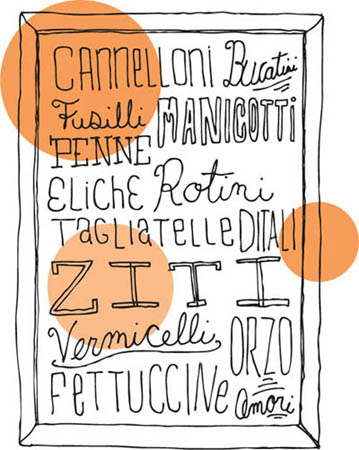 CANNELLONI Bucatini
Fusilli MANICOTTI
PENNE
ELICHE Rotini
TAGLIATELLE DITALI
ZITI
Vermicelli, ORZO
FETTUCCINE Amori